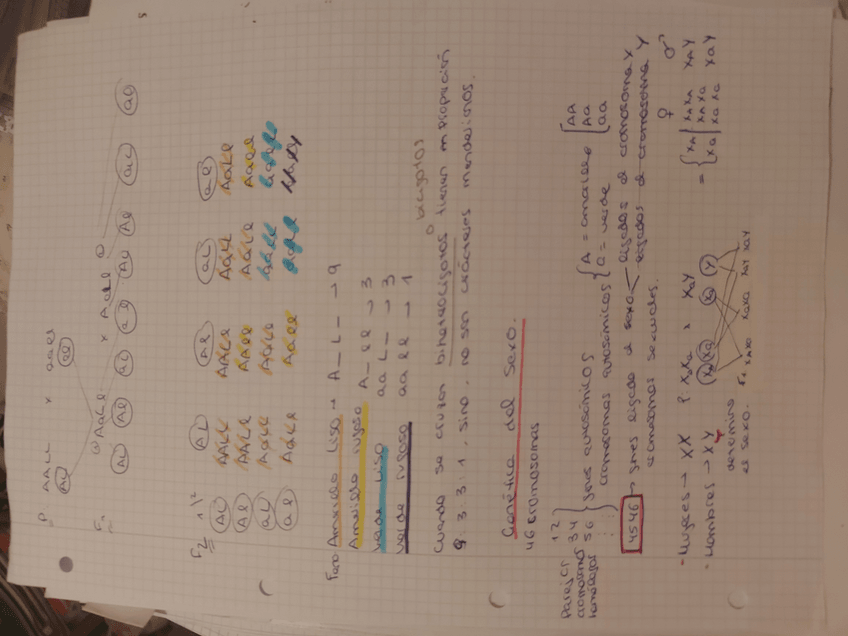 P AALL x aall
AL al
F1 AaLl x AaLl
AL Al aL al AL Al aL al
F2
AL Al aL al
AL AALL AALl AaLL AaLl
Al AALl AAll AaLl Aall
aL AaLL AaLl aaLL aaLl
al AaLl Aall aaLl aall
Amarillo Liso → A_L_ → 9
Amarillo rugoso A_ll → 3
verde liso aaL_ → 3
verde rugoso aall → 1
Cuando se cruzan diheterocigotos o dicigotos tienen in proporción
9:3:3:1, sino, no son carácteres mendelianos.
Genética del Sexo.
46 cromosomas
Parejas
cromosomas
homólogos
1 2
3 4
5 6
genes autosómicos
cromosomas autosómicos
A = amarillo
a = verde
AA
Aa
aa
45 46 → genes ligados al sexo
ligados al cromosoma X
ligados al cromosoma Y
cromosomas sexuales.
- Mujeres → XX
- Hombres → XY
determina
el sexo.
P. XAXa x XaY
XA Xa Xa Y
F1 XAXa XaXa XAY XaY
♀ ♂
= XA XAXA XAXa XAY
Xa XaXa XaY